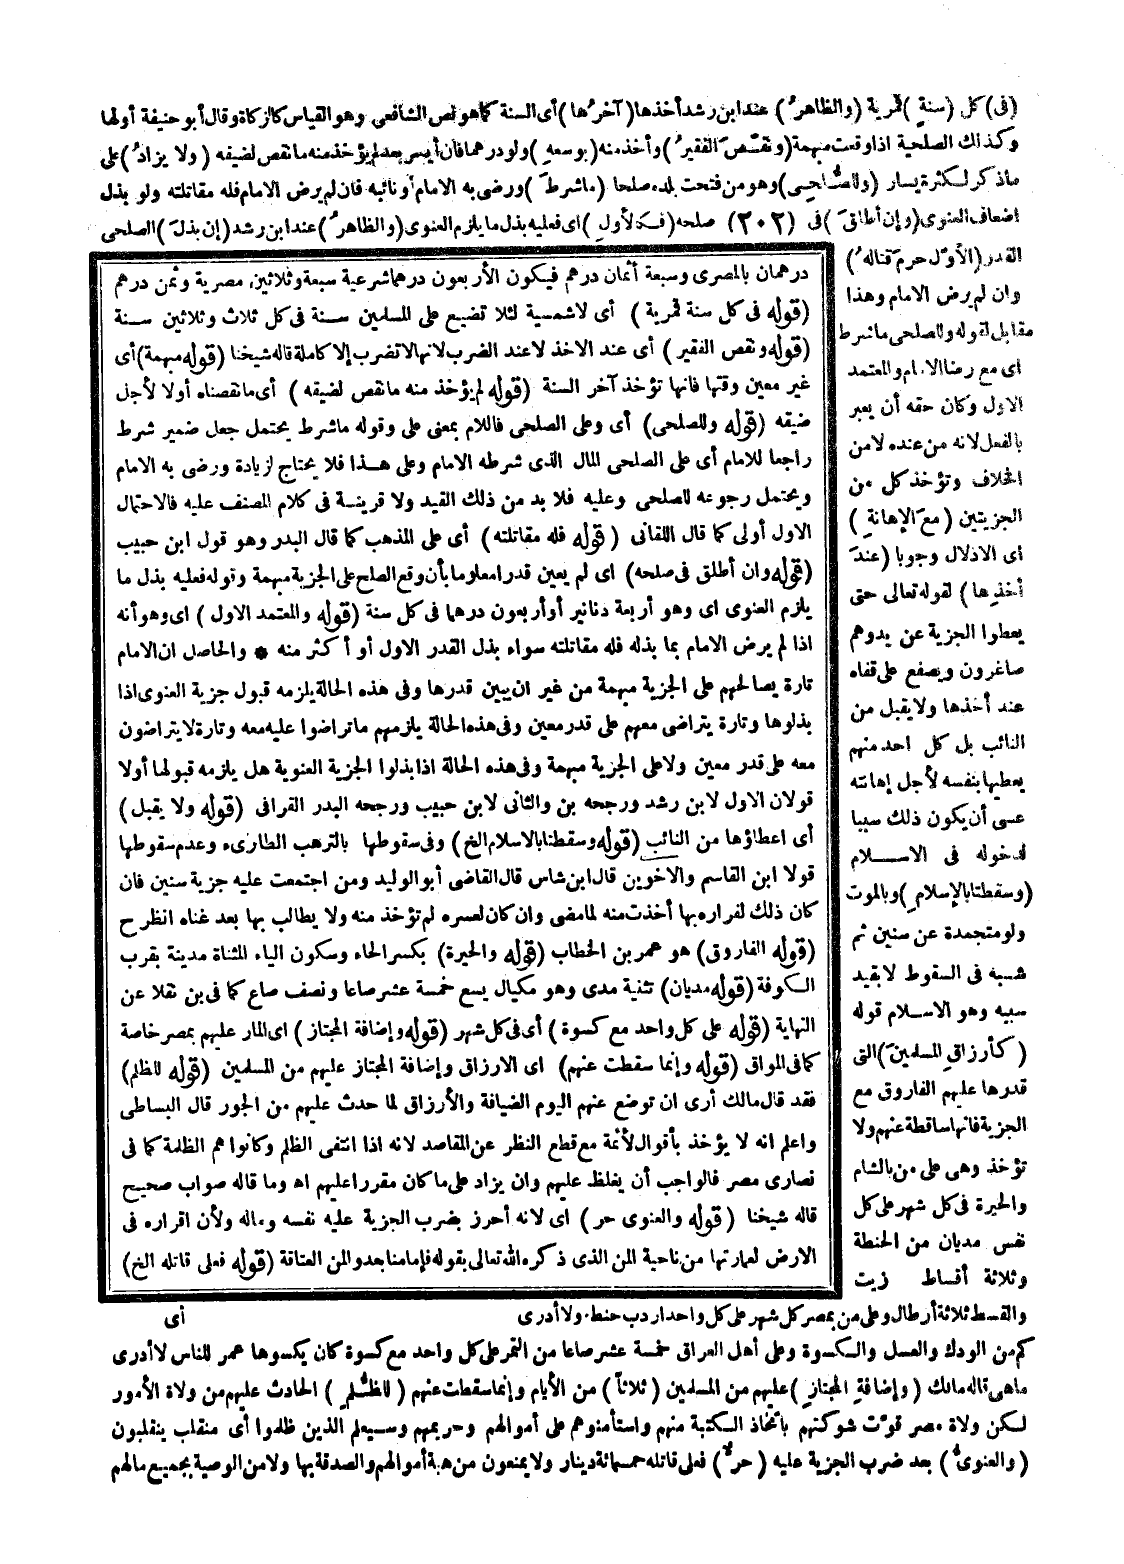 (فى) كل (سنةٍ) قمرية (والظاهرُ) عند ابن رشد أخذها (آخرُها) أى السنة كما هو نص الشافعى وهو القياس كالزكاة وقال أبو حنيفة أولها
وكذلك الصلحية اذا وقعت مبهمة (ونقّصَ الفقيرُ) وأخذ منه (بوسعهِ) ولو درهما فان أيسر بعد لم يؤخذ منه ما نقص لضيقه (ولا يزادُ) على
ماذكر لكثرة يسار (وللصُّلحىِ) وهو من فتحت بلده صلحا (ماشرطَ) ورضى به الامام أو نائبه فان لم يرض الامام فله مقاتلته ولو بذل
اضعاف العنوى (وإن أطلقَ) فى (٢٠٢) صلحه (فكالأولِ) اى فعليه بذل ما يلزم العنوى (والظاهرُ) عند ابن رشد (إن بذلَ) الصلحى
القدر (الأوّل حرمَ قتالهُ)
وان لم يرض الامام وهذا
مقابل لقوله وللصلحى ماشرط
اى مع رضا الامام والمعتمد
الاول وكان حقه أن يعبر
بالفعل لانه من عنده لامن
الخلاف وتؤخذ كل من
الجزيتين (مع الإهانةِ)
اى الاذلال وجوبا (عندَ
أخذِها) لقوله تعالى حتى
يعطوا الجزية عن يد وهم
صاغرون ويصفع على قفاه
عند أخذها ولا يقبل من
النائب بل كل احد منهم
يعطيها بنفسه لأجل إهانته
عسى أن يكون ذلك سببا
لدخوله فى الاســلام
(وسقطتا بالإسلامِ) وبالموت
ولو متجمدة عن سنين ثم
شبه فى السقوط لا بقيد
سببه وهو الاسلام قوله
(كأرزاقِ المسلمينَ) التى
قدرها عليهم الفاروق مع
الجزية فانها ساقطة عنهم ولا
تؤخذ وهى على من بالشام
والحيرة فى كل شهر على كل
نفس مديان من الحنطة
وثلاثة أقساط زيت
درهمان بالمصرى وسبعة أثمان درهم فيكون الأربعون درهما شرعية سبعة وثلاثين مصرية وثمن درهم
(قوله فى كل سنة قمرية) أى لا شمسية لئلا تضيع على المسلمين سنة فى كل ثلاث وثلاثين سنة
(قوله ونقص الفقير) أى عند الاخذ لا عند الضرب لانها لا تضرب إلا كاملة قاله شيخنا (قوله مبهمة) أى
غير معين وقتها فانها تؤخذ آخر السنة (قوله لم يؤخذ منه ما نقص لضيقه) أى ما نقصناه أولا لأجل
ضيقه (قوله وللصلحى) أى وعلى الصلحى فاللام بمعنى على وقوله ماشرط يحتمل جعل ضمير شرط
راجعا للامام أى على الصلحى المال الذى شرطه الامام وعلى هـذا فلا يحتاج لزيادة ورضى به الامام
ويحتمل رجوعه للصلحى وعليه فلا بد من ذلك القيد ولا قرينـة فى كلام المصنف عليه فالاحتمال
الاول أولى كما قال اللقانى (قوله فله مقاتلته) أى على المذهب كما قال البدر وهو قول ابن حبيب
(قوله وان أطلق فى صلحه) اى لم يعين قدرا معلوما بأن وقع الصلح على الجزية مبهمة وقوله فعليه بذل ما
يلزم العنوى اى وهو أربعة دنانير أو أربعون درهما فى كل سنة (قوله والمعتمد الاول) اى وهو أنه
اذا لم يرض الامام بما بذله فله مقاتلته سواء بذل القدر الاول أو أكثر منه * والحاصل ان الامام
تارة يصالحهم على الجزية مبهمة من غير ان يبين قدرها وفى هذه الحالة يلزمه قبول جزية العنوى اذا
بذلوها وتارة يتراضى معهم على قدر معين وفى هذه الحالة يلزمهم ما تراضوا عليه معه وتارة لا يتراضون
معه على قدر معين ولا على الجزية مبهمة وفى هذه الحالة اذا بذلوا الجزية العنوية هل يلزمه قبولها أولا
قولان الاول لابن رشد ورجحه بن والثانى لابن حبيب ورجحه البدر القرافى (قوله ولا يقبل)
أى اعطاؤها من النائب (قوله وسقطتا بالاسلام الخ) وفى سقوطها بالترهب الطارىء وعدم سقوطها
قولا ابن القاسم والاخوين قال ابن شاس قال القاضى أبو الوليد ومن اجتمعت عليه جزية سنين فان
كان ذلك لفراره بها أخذت منه لما مضى وان كان لعسره لم تؤخذ منه ولا يطالب بها بعد غناه انظر ح
(قوله الفاروق) هو عمر بن الخطاب (قوله والحيرة) بكسر الحاء وسكون الياء المثناة مدينة بقرب
الكوفة (قوله مديان) تثنية مدى وهو مكيال يسع خمسة عشر صاعا ونصف صاع كما فى بن نقلا عن
النهاية (قوله على كل واحد مع كسوة) أى فى كل شهر (قوله وإضافة المجتاز) اى المار عليهم بمصر خاصة
كما فى المواق (قوله وإنما سقطت عنهم) اى الارزاق وإضافة المجتاز عليهم من المسلمين (قوله للظلم)
فقد قال مالك أرى ان توضع عنهم اليوم الضيافة والأرزاق لما حدث عليهم من الجور قال البساطى
واعلم انه لا يؤخذ بأقوال لأئمة مع قطع النظر عن المقاصد لانه اذا انتفى الظلم وكانوا هم الظلمة كما فى
نصارى مصر فالواجب أن يغلظ عليهم وان يزاد على ما كان مقررا عليهم اه وما قاله صواب صحيح
قاله شيخنا (قوله والعنوى حر) اى لانه أحرز بضرب الجزية عليه نفسه وماله ولأن اقراره فى
الارض لعمارتها من ناحية المن الذى ذكره الله تعالى بقوله فإما منا بعد والمن العتاقة (قوله فعلى قاتله الخ)
والقسط ثلاثة أرطال وعلى من بمصر كل شهر على كل واحد اردب حنطة ولا أدرى أى
كم من الودك والعسل والـكسوة وعلى أهل العراق خمسة عشر صاعا من التمر على كل واحد مع كسوة كان يكسوها عمر للناس لا أدرى
ما هى قاله مالك (وإضافةِ المجتازِ) عليهم من المسلمين (ثلاثاً) من الأيام وإنما سقطت عنهم (للظُّلمِ) الحادث عليهم من ولاة الأمور
لـكن ولاة مصر قوّت شوكتهم باتخاذ الـكتبة منهم واستأمنوهم على أموالهم وحريمهم وسيعلم الذين ظلموا أى منقلب ينقلبون
(والعنوىُّ) بعد ضرب الجزية عليه (حرٌّ) فعلى قاتله خمسمائة دينار ولا يمنعون من هبة أموالهم والصدقة بها ولا من الوصية بجميع مالهم